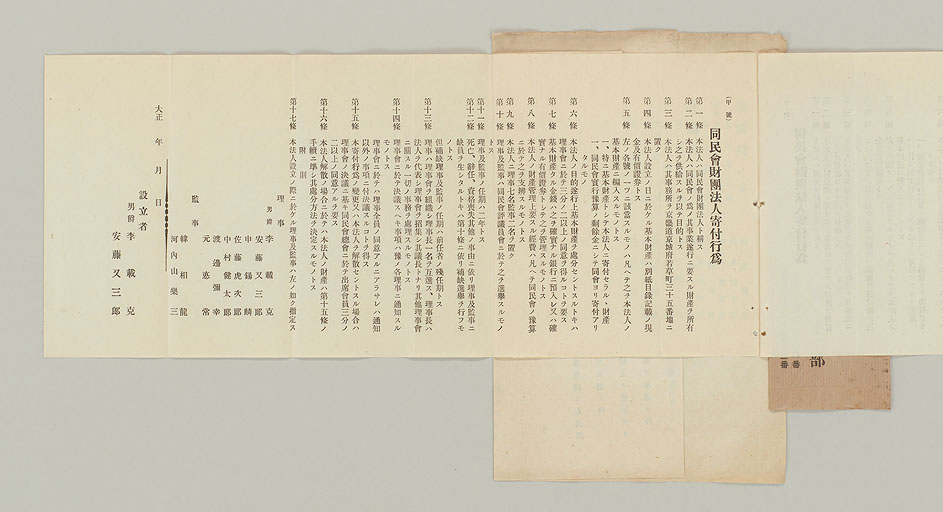 (甲號)
同民會財團法人寄付行爲
第一條 本法人ハ同民會財團法人ト稱ス
第二條 本法人ハ同民會ノ爲メ其事業遂行ニ要スル財產ヲ所有
シ之ヲ供給スルヲ以テ目的トス
第三條 本法人ハ其事務所ヲ京畿道京城府若草町三十五番地ニ
置ク
第四條 本法人設立ノ日ニ於ケル基本財產ハ別紙目錄記載ノ現
金及有價證券トス
第五條 左ノ各號ノ一ツニ該當スルモノハ凡ヘテ之ヲ本法人ノ
基本財產ニ編入スルモノトス
一、特ニ基本財產トシテ本法人ニ寄付セラル、財產
一、同民會實行豫算ノ剩餘金ニシテ同會ヨリ寄付アリ
タルモノ
第六條 本法人目的遂行上基本財產ヲ處分セントスルトキハ
理事會ニ於テ三分ノ二以上ノ同意ヲ得ルコトヲ要ス
第七條 基本財產タル金錢ハ之ヲ確實ナル銀行ニ預入レ又ハ確
實ナル有價證券トシテ之ヲ管理スルモノトス
第八條 本法人ノ財產管理上ニ要スル經費ハ凡ヘテ同民會ノ豫算
ニ於テ之ヲ支辨スルモノトス
第九條 本法人ニ理事七名監事二名ヲ置ク
第十條 理事及監事ハ同民會評議員會ニ於テ之ヲ選擧スルモノ
トス
第十一條 理事及監事ノ任期ハ二年トス
第十二條 死亡、辭任、資格喪失其他ノ事由ニ依リ理事及監事ニ
缺員ヲ生シタルトキハ第十條ニ依リ補缺選擧ヲ行フモ
ノトス
但補缺理事及監事ノ任期ハ前任者ノ殘任期トス
第十三條 理事ハ理事會ヲ組織シ理事長一名ヲ互選ス、理事長ハ
法人ヲ代表シ理事會ヲ招集シ其議長トナリ其他理事會
ニ關スル一切ノ事務ヲ處理スルモノトス
第十四條 理事會ニ於テ決議スヘキ事項ハ豫メ各理事ニ通知スル
モノトス
理事會ニ於テハ理事全員ノ同意アルニアラサレハ通知
以外ノ事項ニ付決議スルコトヲ得ス
第十五條 本寄付行爲ノ變更又ハ本法人ヲ解散セントスル場合ハ
理事會ノ決議ニ基キ同民會總會ニ於テ出席會員三分ノ
二以上ノ同意アルヲ要ス
第十六條 本法人解散ノ場合ニ於テハ本法人ノ財產ハ第十五條ノ
手續ニ準シ其處分方法ヲ決定スルモノトス
附則
第十七條 本法人設立ノ際ニ於ケル理事及監事ハ左ノ如ク指定ス
理事 男爵 李載克
安藤又三郎
申錫麟
佐藤虎次郎
中村健太郎
渡邊彌幸
元悳常
監事 韓相龍
河內山樂三
大正 年 月 日
設立者
男爵 李載克
安藤又三郎
部
番
番